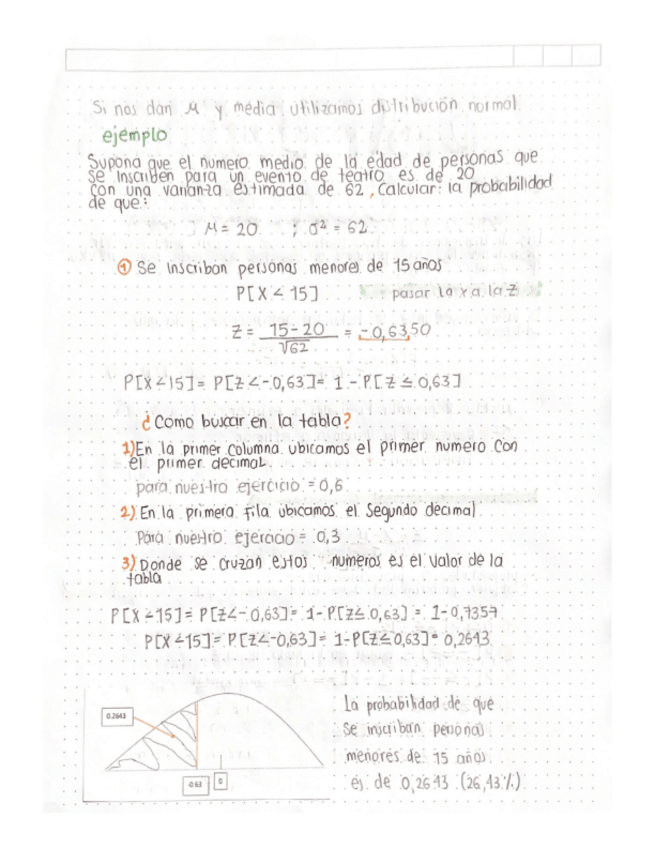 Si nos dan M y media utilizamos distribución normal
ejemplo
Supona que el numero medio de la edad de personas que
se inscriben para un evento de teatro es de 20
con una varianza estimada de 62, Calcular: la probabilidad
de que:
M = 20 ; σ² = 62
① Se inscriban personas menores de 15 años
P[X < 15] pasar la x a la Z
Z = 15-20 / √62 = -0,6350
P[X<15] = P[Z<-0,63] = 1 - P[Z ≤ 0,63]
¿Como buscar en la tabla?
1) En la primer columna ubicamos el primer numero con
el primer decimal
para nuestro ejercicio = 0,6
2) En la primera fila ubicamos el segundo decimal
Para nuestro ejercicio = 0,3
3) Donde se cruzan estos numeros es el valor de la
tabla
P[X<15] = P[Z<-0,63] = 1-P[Z≤0,63] = 1-0,7357
P[X<15] = P[Z<-0,63] = 1-P[Z≤0,63] = 0,2643
0.2643
-0.63 0
La probabilidad de que
se inscriban personas
menores de 15 años
es de 0,2643 (26,43%)